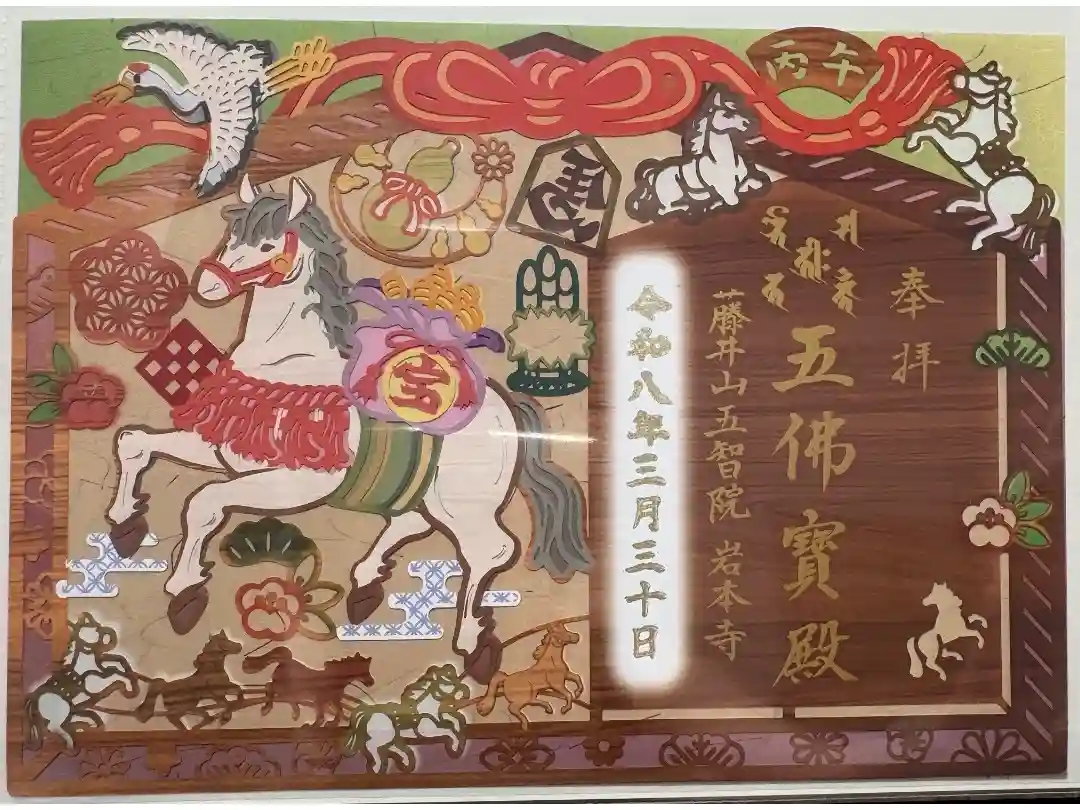 丙午
馬
宝
奉拝
五佛寶殿
藤井山五智院 岩本寺
令和八年三月三十日